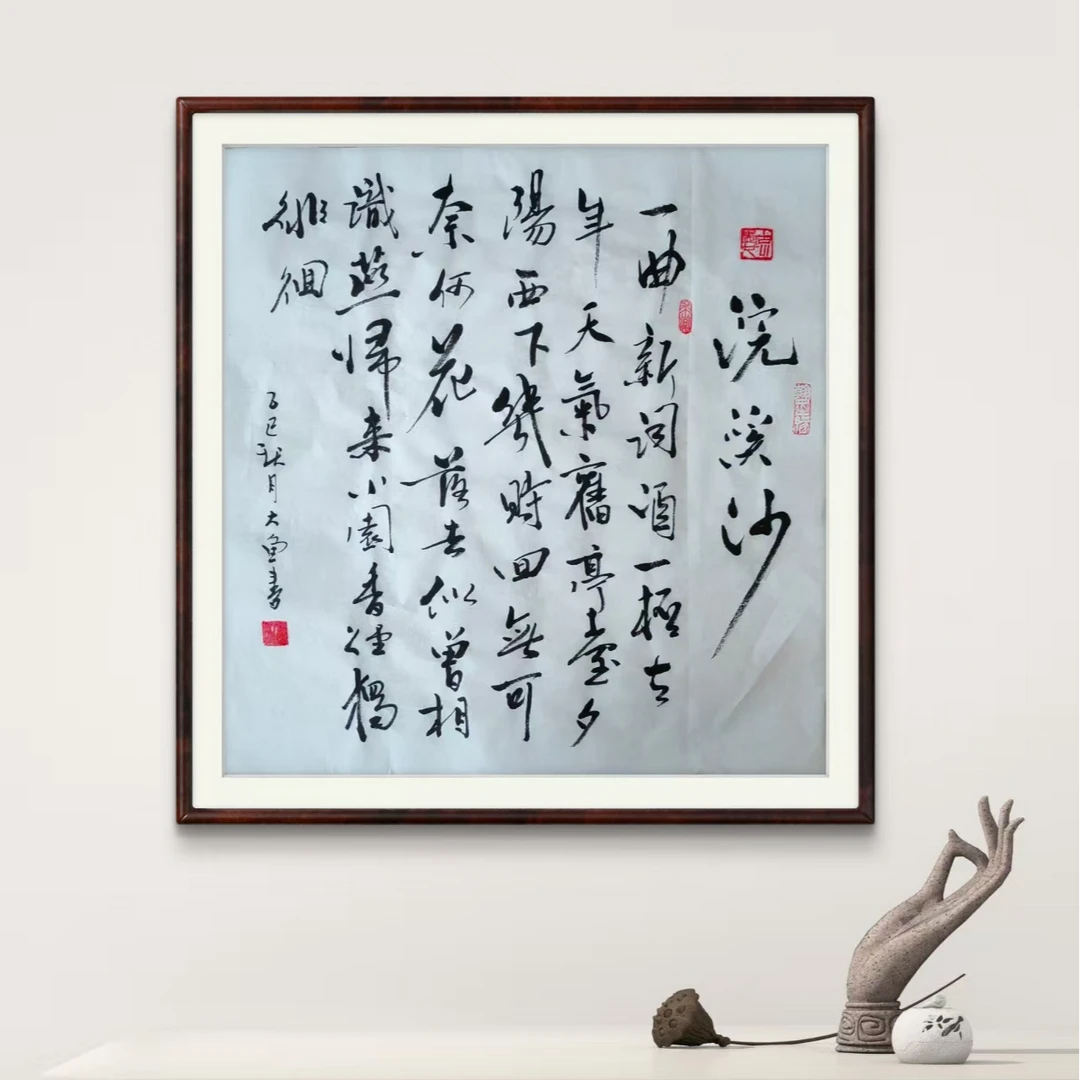 浣溪沙
一曲新詞酒一桮去
年天氣舊亭臺夕
陽西下幾時回無可
奈何花落去似曾相
識燕歸来小園香徑獨
徘徊
乙巳秋月大魚書